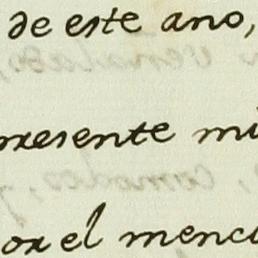 de este ano,
presente mi
por el menci